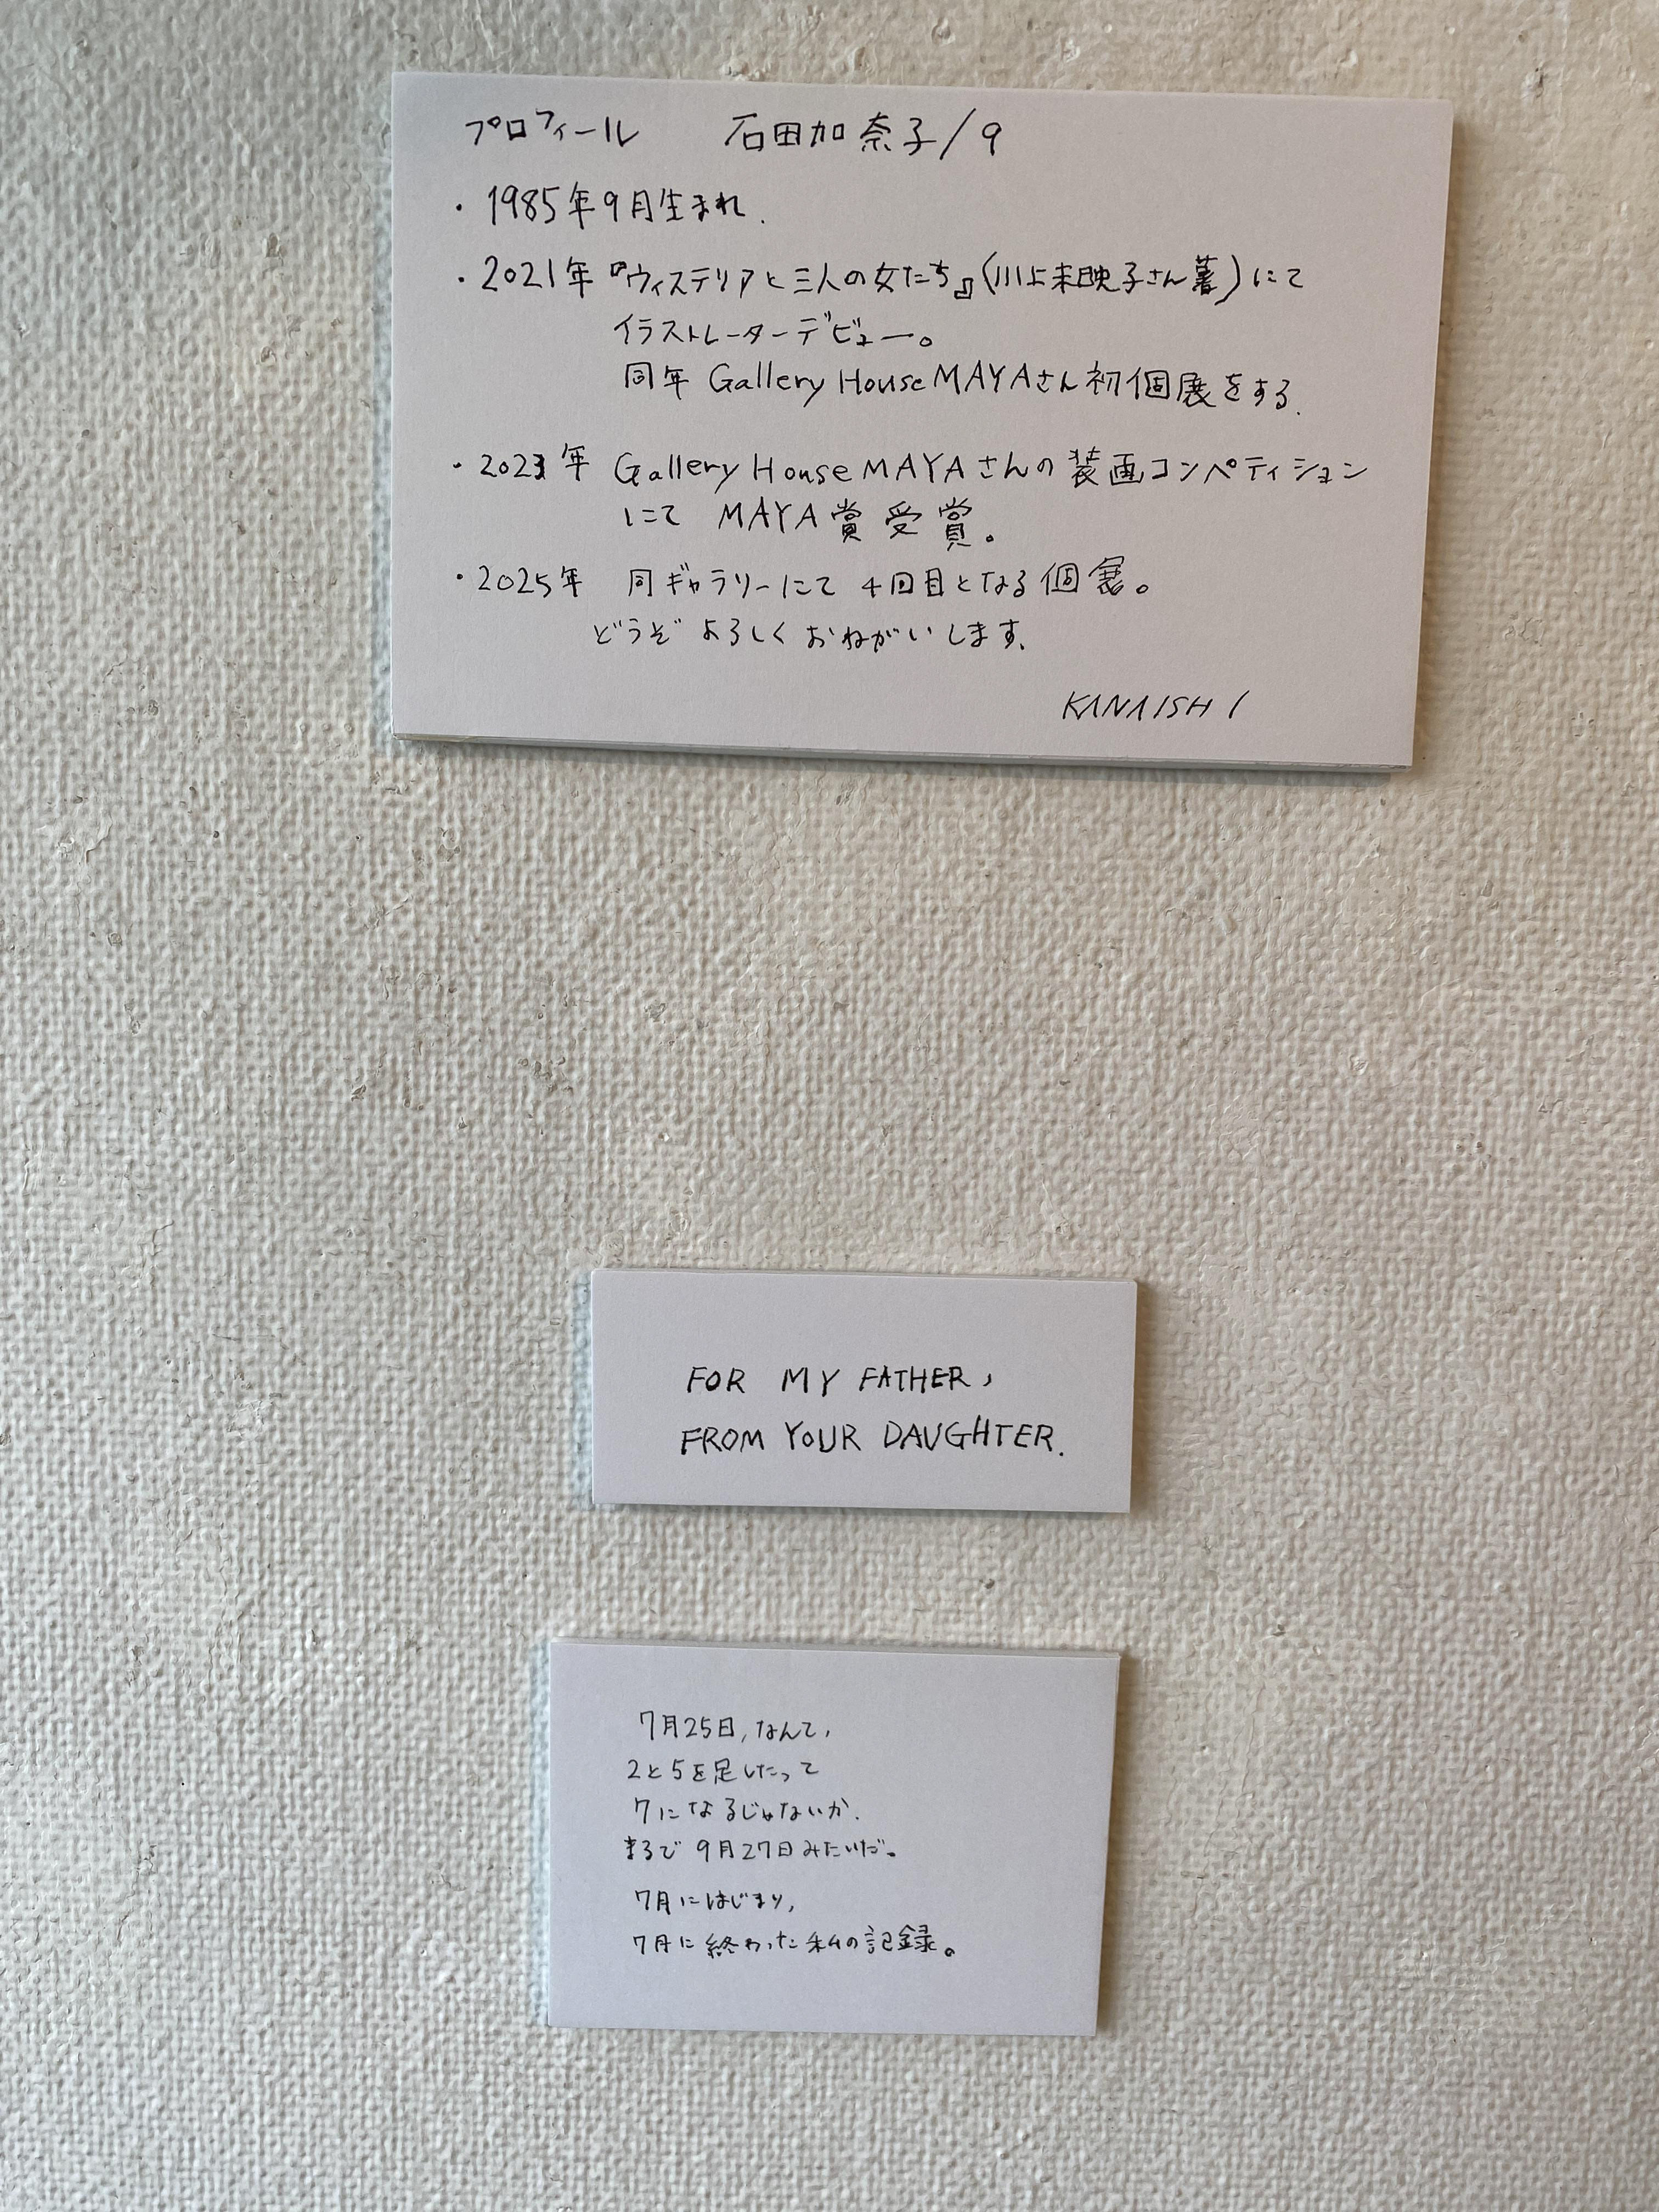 プロフィール 石田加奈子/9
・1985年9月生まれ.
・2021年『ウィステリアと三人の女たち』(川上未映子さん著)にて
イラストレーターデビュー。
同年 Gallery House MAYAさん初個展をする.
・2023年 Gallery House MAYAさんの装画コンペティション
にて MAYA賞受賞。
・2025年 同ギャラリーにて 4回目となる個展。
どうぞ よろしく おねがいします.
KANAISHI
FOR MY FATHER,
FROM YOUR DAUGHTER.
7月25日,なんて,
2と5を足したって
7になるじゃないか.
まるで 9月27日みたいだ。
7月にはじまり,
7月に終わった私の記録。